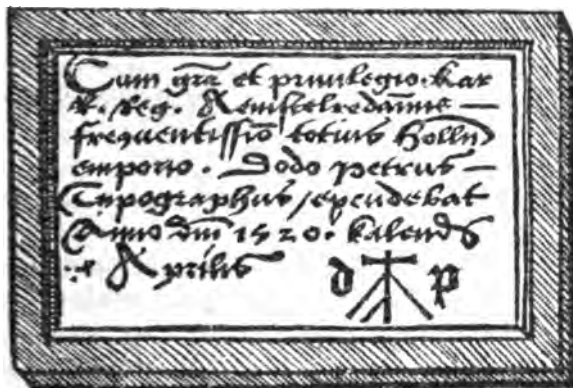 Cum grã et priuilegio. kar
R. Reg. Aemstelredãme —
frequentissiõ totius Holl
emporio. Dodo petrus —
Typographus / excudebat
Anno dñi 1520. kalends
Aprilis d p